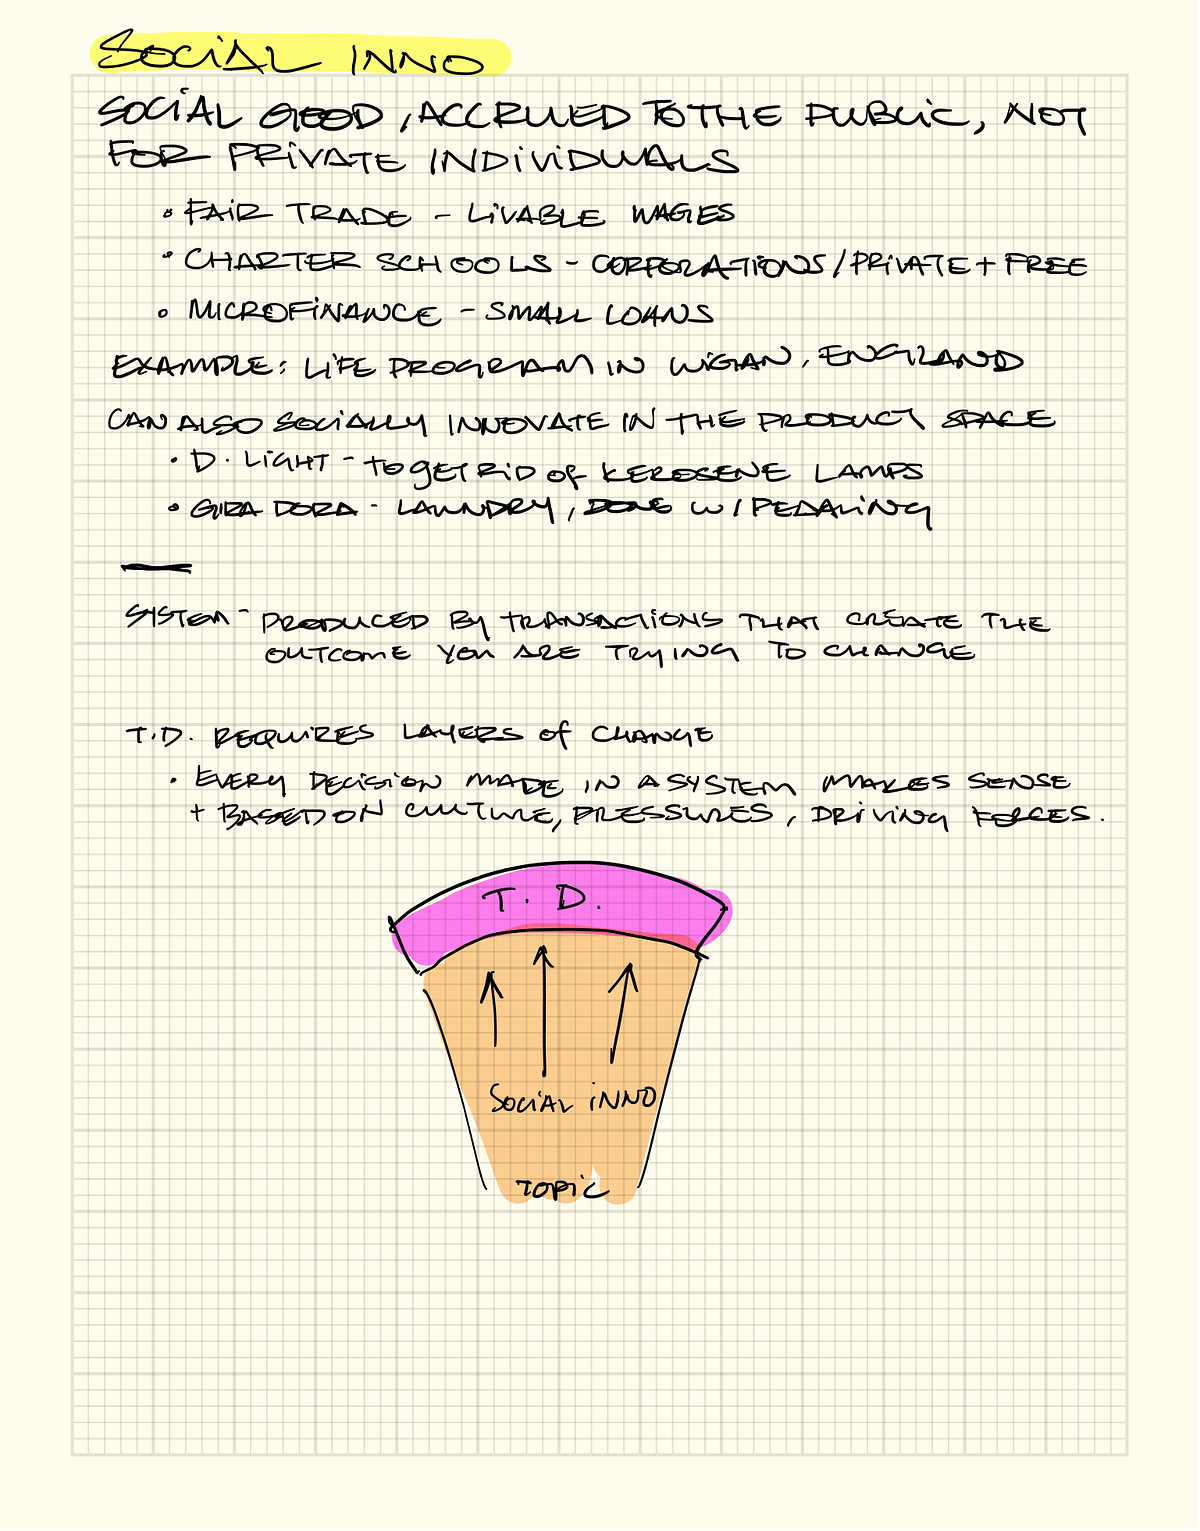 SOCIAL INNO
SOCIAL GOOD, ACCRUED TO THE PUBLIC, NOT
FOR PRIVATE INDIVIDUALS
• FAIR TRADE - LIVABLE WAGES
• CHARTER SCHOOLS - CORPORATIONS/PRIVATE + FREE
• MICROFINANCE - SMALL LOANS
EXAMPLE: LIFE PROGRAM IN WIGAN, ENGLAND
CAN ALSO SOCIALLY INNOVATE IN THE PRODUCT SPACE
• D.LIGHT - TO GET RID OF KEROSENE LAMPS
• GIRA DORA - LAUNDRY, DONE W/ PEDALING
SYSTEM - PRODUCED BY TRANSACTIONS THAT CREATE THE
OUTCOME YOU ARE TRYING TO CHANGE
T.D. REQUIRES LAYERS OF CHANGE
• EVERY DECISION MADE IN A SYSTEM MAKES SENSE
+ BASED ON CULTURE, PRESSURES, DRIVING FORCES.
T. D.
SOCIAL INNO
TOPIC